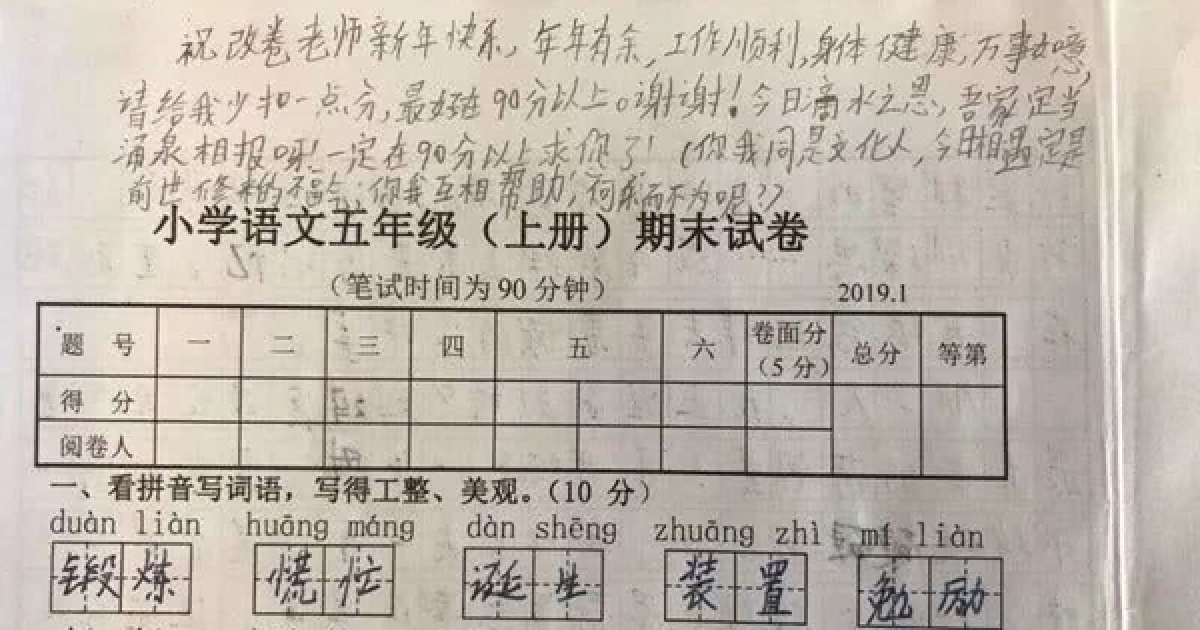 祝改卷老师新年快乐,年年有余,工作顺利,身体健康,万事如意,
请给我少扣一点分,最好在90分以上。谢谢!今日滴水之恩,吾家定当
涌泉相报呀!一定在90分以上求你了!(你我同是文化人,今日相遇定是
前世修来的福分;你我互相帮助,何乐而不为呢??)
小学语文五年级(上册)期末试卷
(笔试时间为90分钟) 2019.1
题 号 一 二 三 四 五 六 卷面分(5分) 总分 等第
得 分
阅卷人
一、看拼音写词语,写得工整、美观。(10 分)
duàn liàn huāng máng dàn shēng zhuāng zhì mí liàn
锻炼 慌忙 诞生 装置 勉励